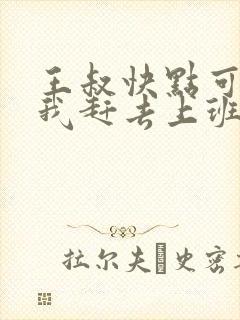 王叔快點可
我赶去上班
拉尔夫·史密